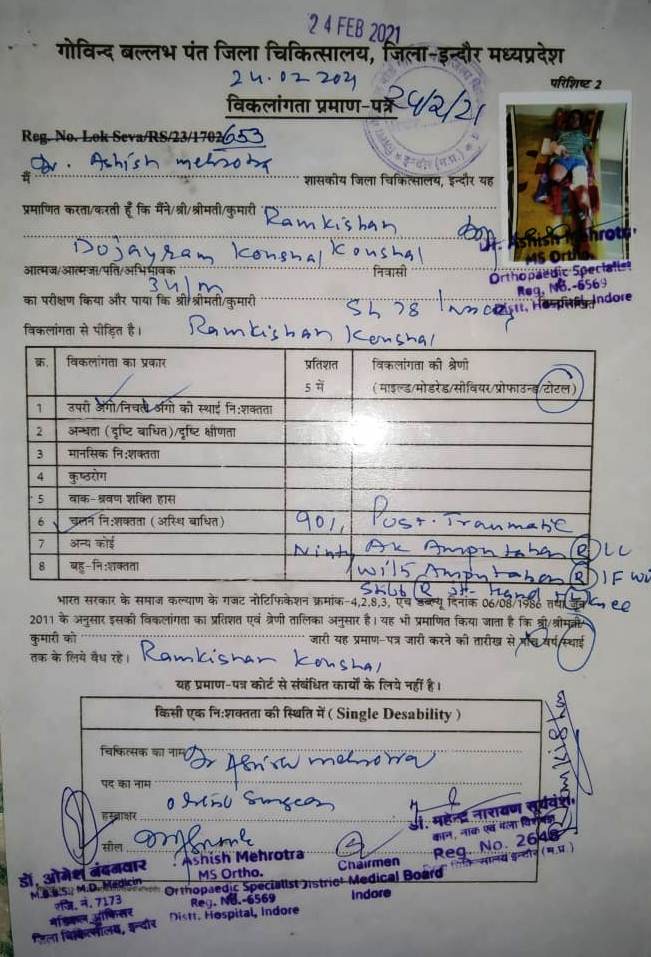 24 FEB 2021
गोविन्द बल्लभ पंत जिला चिकित्सालय, जिला-इन्दौर मध्यप्रदेश
24.02.2021
परिशिष्ट 2
विकलांगता प्रमाण-पत्र 24/2/21
Reg. No. Lok Seva/RS/23/1702/653
Dr. Ashish mehrotra
मैं शासकीय जिला चिकित्सालय, इन्दौर यह
प्रमाणित करता/करती हूँ कि मैंने/श्री/श्रीमती/कुमारी Ramkishan
Dr. Ashish Mehrotra
MS Ortho.
Orthopaedic Specialist
Reg. No.-6569
Distt. Hospital, Indore
Konshal Konshal
आत्मज/आत्मजा/पति/अभिभावक निवासी
34/m
का परीक्षण किया और पाया कि श्री/श्रीमती/कुमारी Sh 78
विकलांगता से पीड़ित है। Ramkishan Konshal
क्र. विकलांगता का प्रकार प्रतिशत 5 में विकलांगता की श्रेणी
(माइल्ड/मोडरेड/सीवियर/प्रोफाउन्ड/टोटल)
1 उपरी अंगो/निचले अंगो की स्थाई नि:शक्तता
2 अन्धता (दृष्टि बाधित)/दृष्टि क्षीणता
3 मानसिक नि:शक्तता
4 कुष्ठरोग
5 वाक-श्रवण शक्ति हास
6 चलन नि:शक्तता (अस्थि बाधित) 90% Post. Traumatic
7 अन्य कोई Ninty AK Amputation (R) LL
8 बहु-नि:शक्तता with Amputation (R) IF
hand knee
भारत सरकार के समाज कल्याण के गजट नोटिफिकेशन क्रमांक-4,2,8,3, एच डब्ल्यू दिनांक 06/08/1986 तथा जून
2011 के अनुसार इसकी विकलांगता का प्रतिशत एवं श्रेणी तालिका अनुसार है। यह भी प्रमाणित किया जाता है कि श्री/श्रीमती/
कुमारी को जारी यह प्रमाण-पत्र जारी करने की तारीख से पाँच वर्ष/स्थाई
तक के लिये वैध रहे। Ramkishan Konshal
यह प्रमाण-पत्र कोर्ट से संबंधित कार्यो के लिये नहीं है।
किसी एक नि:शक्तता की स्थिति में ( Single Desability )
चिकित्सक का नाम Dr Ashish mehrotra
पद का नाम
हस्ताक्षर Surgeon
सील
डॉ. महेन्द्र नारायण सूर्यवंशी
कान, नाक एवं गला विशेषज्ञ
Reg. No. 2648
जिला चिकित्सालय इन्दौर (म.प्र.)
Ashish Mehrotra
MS Ortho.
Orthopaedic Specialist
Reg. No.-6569
Distt. Hospital, Indore
Chairmen
District Medical Board
Indore
डॉ. ओमेश नंदनवार
M.B.B.S., M.D. Medicin
रजि. नं. 7173
मेडिकल ऑफिसर
जिला चिकित्सालय, इन्दौर